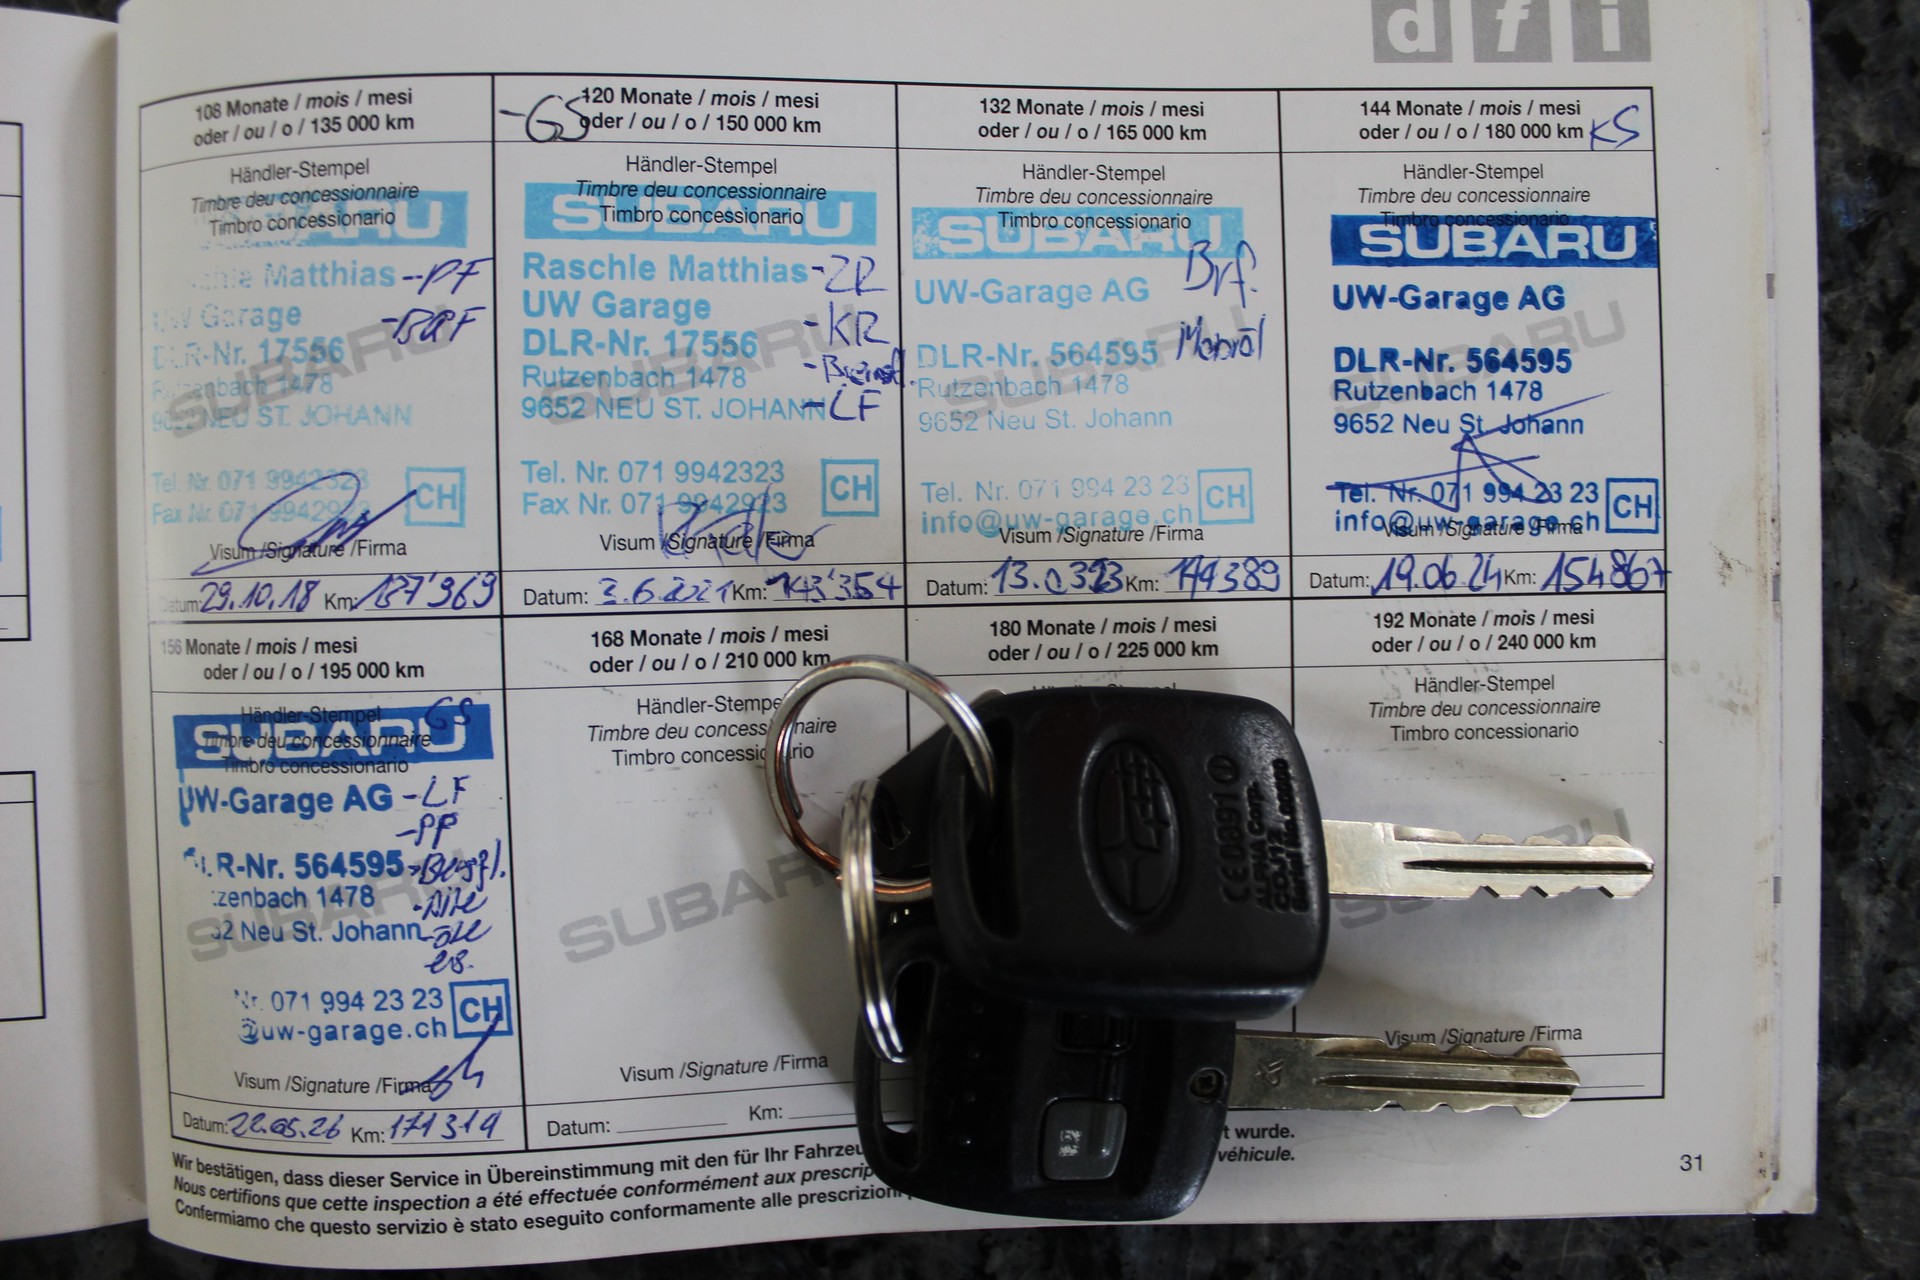 d f i
108 Monate / mois / mesi
oder / ou / o / 135 000 km
Händler-Stempel
Timbre deu concessionnaire
Timbro concessionario
SUBARU
Matthias -PF
UW Garage
DLR-Nr. 17556
Rutzenbach 1478
9652 NEU ST. JOHANN
Tel. Nr. 071 9942323
Fax Nr. 071 9942923
CH
Visum /Signature /Firma
Datum: 29.10.18 Km: 137'969
-GS
120 Monate / mois / mesi
oder / ou / o / 150 000 km
Händler-Stempel
Timbre deu concessionnaire
Timbro concessionario
SUBARU
Raschle Matthias -ZR
UW Garage -KR
DLR-Nr. 17556
Rutzenbach 1478
9652 NEU ST. JOHANN -LF
Tel. Nr. 071 9942323
Fax Nr. 071 9942923
CH
Visum /Signature /Firma
Datum: 3.6.2021 Km: 143'354
132 Monate / mois / mesi
oder / ou / o / 165 000 km
Händler-Stempel
Timbre deu concessionnaire
Timbro concessionario
SUBARU
Brf.
UW-Garage AG
DLR-Nr. 564595
Rutzenbach 1478
9652 Neu St. Johann
Tel. Nr. 071 994 23 23
info@uw-garage.ch
CH
Visum /Signature /Firma
Datum: 13.0323 Km: 149389
144 Monate / mois / mesi
oder / ou / o / 180 000 km KS
Händler-Stempel
Timbre deu concessionnaire
Timbro concessionario
SUBARU
UW-Garage AG
DLR-Nr. 564595
Rutzenbach 1478
9652 Neu St. Johann
Tel. Nr. 071 994 23 23
info@uw-garage.ch
CH
Visum /Signature /Firma
Datum: 19.06.24 Km: 154867
156 Monate / mois / mesi
oder / ou / o / 195 000 km
Händler-Stempel GS
Timbre deu concessionnaire
Timbro concessionario
SUBARU
UW-Garage AG -LF
-PF
LR-Nr. 564595
zenbach 1478
2 Neu St. Johann
Nr. 071 994 23 23
@uw-garage.ch
CH
Visum /Signature /Firma
Datum: 22.05.26 Km: 171314
168 Monate / mois / mesi
oder / ou / o / 210 000 km
Händler-Stempe
Timbre deu concessionnaire
Timbro concessionario
SUBARU
Visum /Signature /Firma
Datum: Km:
180 Monate / mois / mesi
oder / ou / o / 225 000 km
192 Monate / mois / mesi
oder / ou / o / 240 000 km
Händler-Stempel
Timbre deu concessionnaire
Timbro concessionario
SUBARU
Visum /Signature /Firma
CE0891
Wir bestätigen, dass dieser Service in Übereinstimmung mit den für Ihr Fahrzeu t wurde.
Nous certifions que cette inspection a été effectuée conformément aux prescrip véhicule.
Confermiamo che questo servizio è stato eseguito conformamente alle prescrizioni
31